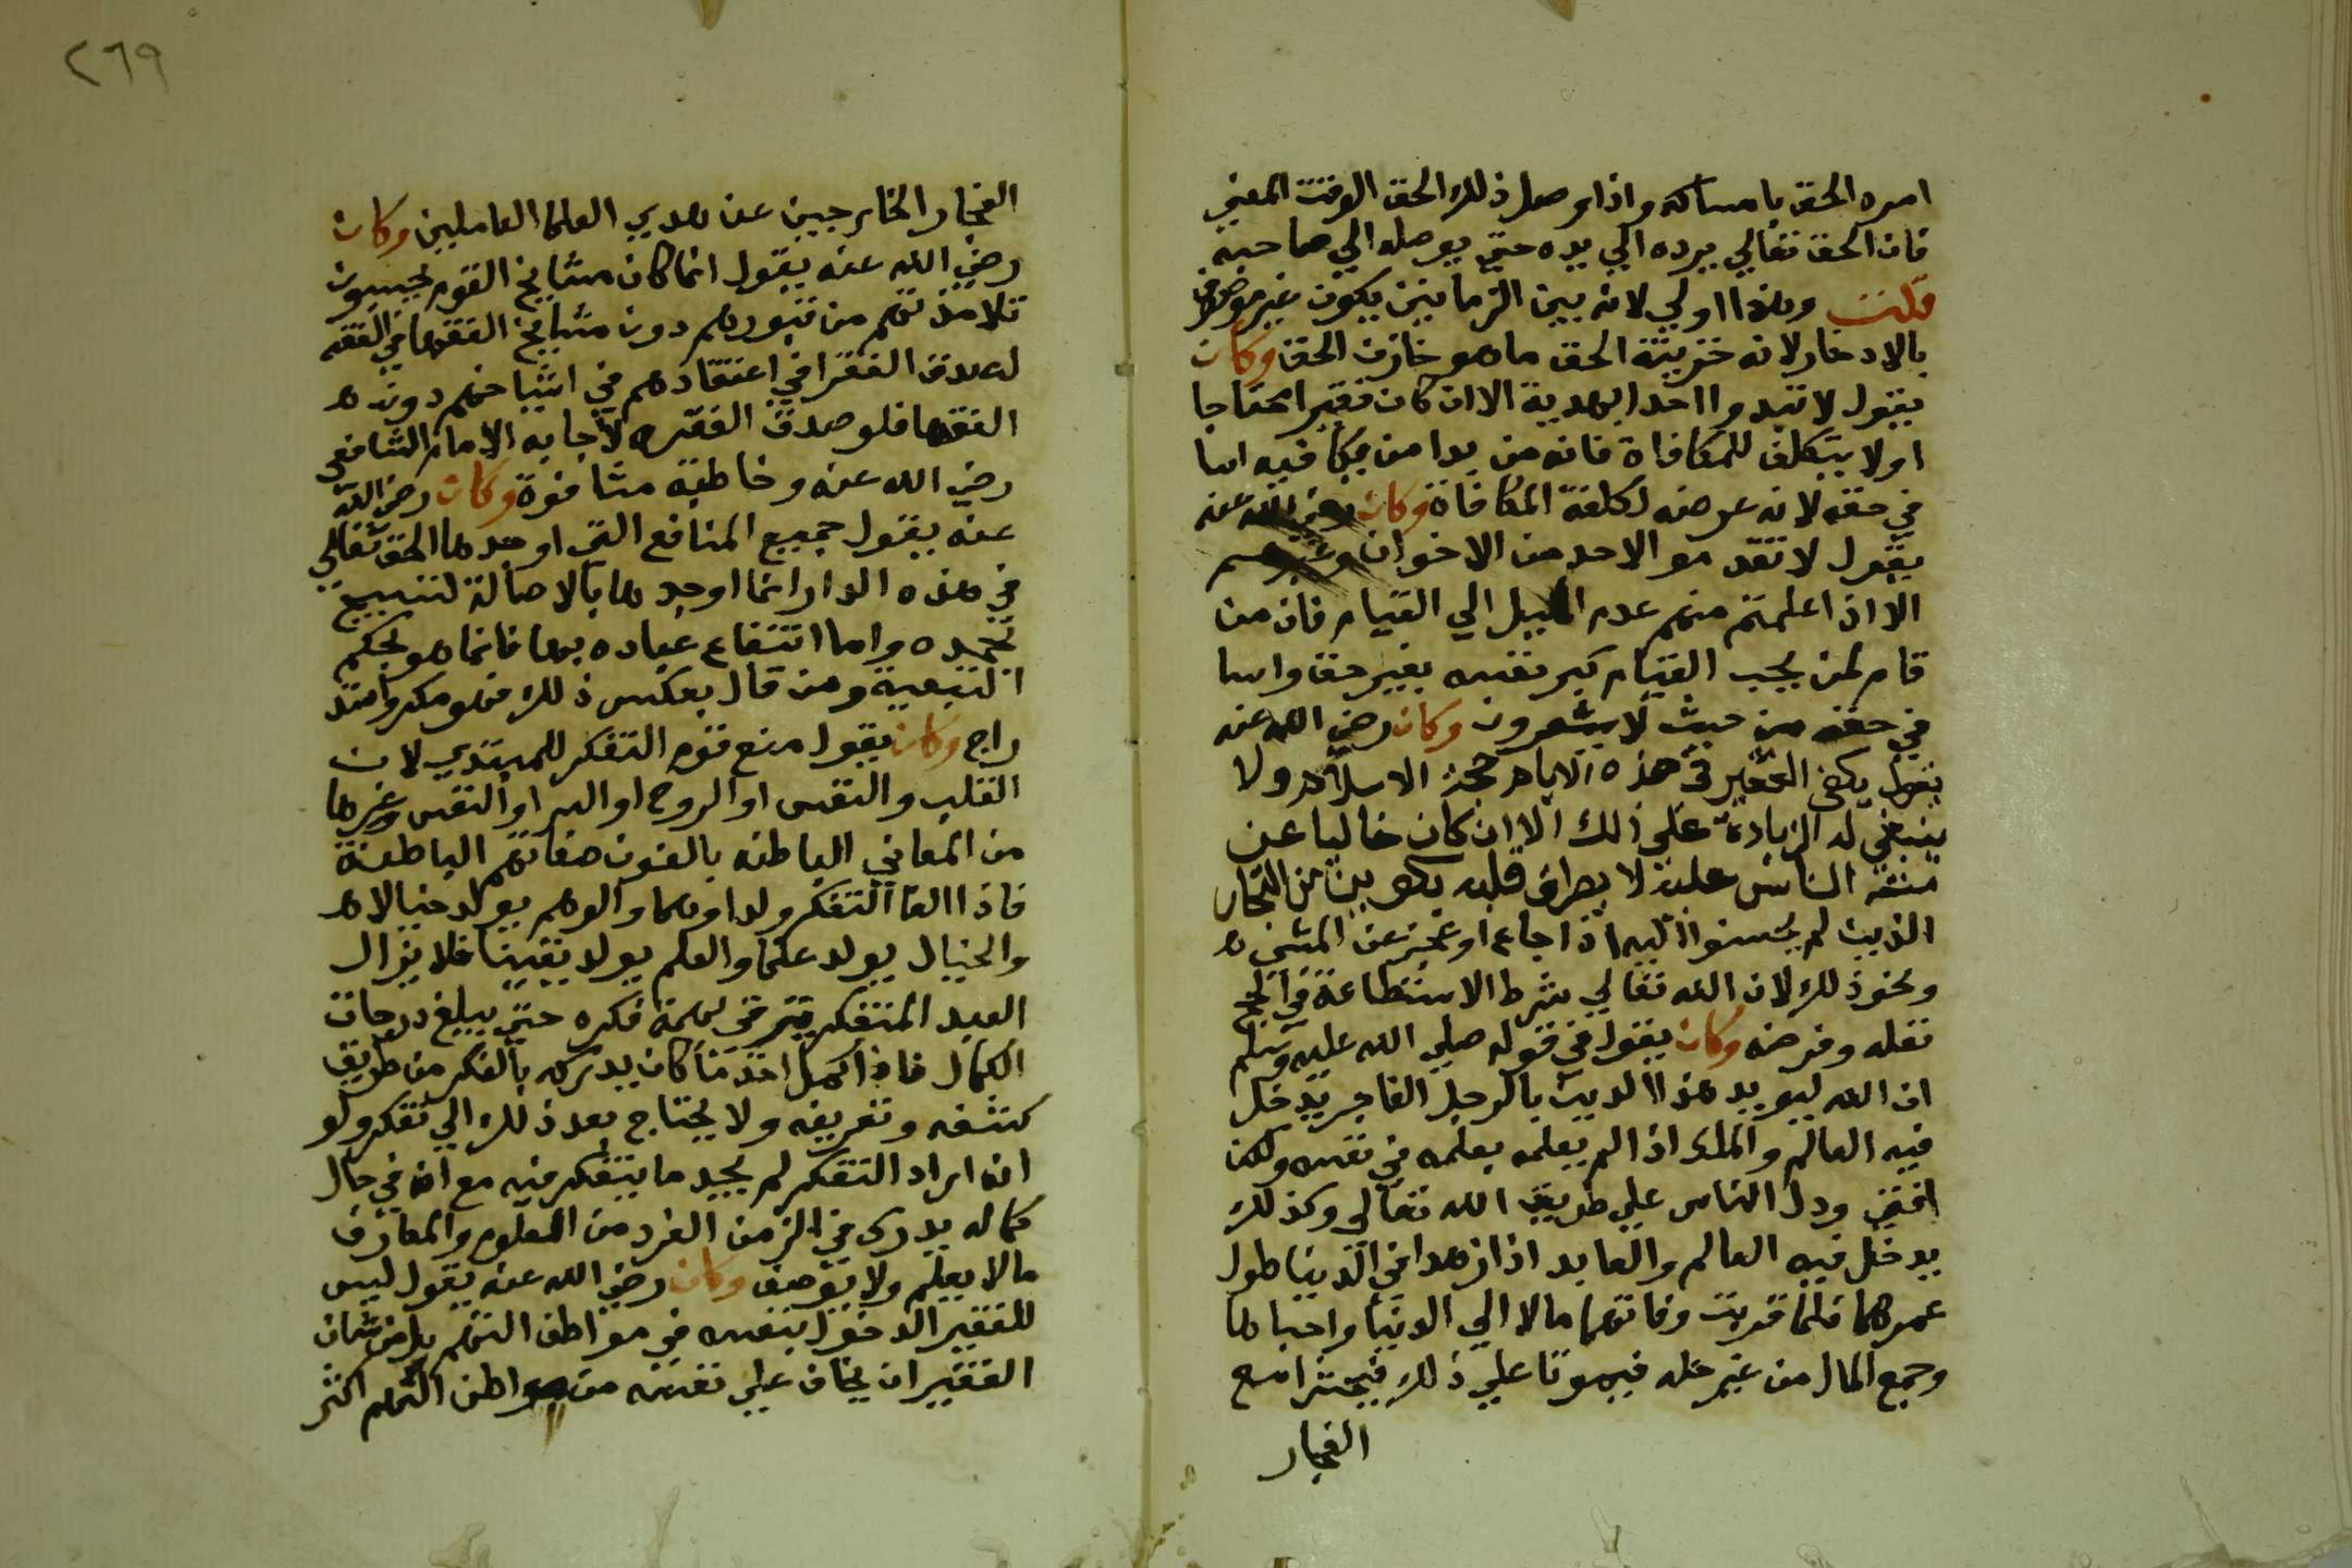 امره الحق بامساكه واذا وصل ذلك الحق الوقت المعين
فان الحق تعالي يرده الي يده حتي يوصله الي صاحبه
قلت وهذا اولي لانه بين الزمانين يكون غير موصوف
بالادخار لانه خزينة الحق ما هو خازن الحق وكان
يقول لا تبدوا احدا بهدية الا ان كان فقيرا محتاجا
اولا يتكلف للمكافاة فانه من بدا من يكافيه اسا
في حقه لانه عرضه لكلفة المكافاة وكان رضي الله عنه
يقول لا تقدموا لاحد من الاخوان وغيرهم
الا اذا علمتم منهم عدم الميل الي القيام فان من
قام لمن يحب القيام كبر نفسه بغير حق واسا
في حقه من حيث لا يشعرون وكان رضي الله عنه
يقول يكفي الفقير في هذه الايام حجة الاسلام ولا
ينبغي له الزيادة علي ذلك الا ان كان خاليا عن
منة الناس عليه لا يطرق قلبه من التجار
الذين لم يحسنوا اليه اذا جاع او عجز عن المشي
ونحو ذلك لان الله تعالي شرط الاستطاعة في الحج
نفله وفرضه وكان يقول في قوله صلي الله عليه وسلم
ان الله ليويد هذا الدين بالرجل الفاجر يدخل
فيه العالم والملك اذا لم يعلمه بعلمه في نفسه ولكن
افتي ودل الناس علي طريق الله تعالي وكذلك
يدخل فيه العالم والعابد اذا زهدا في الدنيا طول
عمرهما فلما قربت وفاتهما مالا الي الدنيا واحباها
وجمع المال من غير حله فيموتا علي ذلك فيحشرا مع
الفجار
٢٦٩
الفجار الخارجين عن هدي العلما العاملين وكان
رضي الله عنه يقول انما كان مشايخ القوم يجيبون
تلامذتهم من قبورهم دون مشايخ الفقها في الفقه
لصدق الفقرا في اعتقادهم في اشياخهم دون
الفقها فلو صدق الفقيه لاجابه الامام الشافعي
رضي الله عنه وخاطبه مشافهة وكان رضي الله
عنه يقول جميع المنافع التي اوجدها الحق تعالي
في هذه الدار انما اوجدها بالاصالة لتسبيح
بحمده واما انتفاع عباده بها فانما هو بحكم
التبعية ومن قال بعكس ذلك فهو مكر واستد
راج وكان يقول منع قوم التفكر للمبتدي لان
القلب والنفس او الروح او السر او النفس وغيرها
من المعاني الباطنه بالفون صفاتهم الباطنة
فاذا الفا التفكر ولد اوهما والوهم يولد خيالا
والخيال يولد علما والعلم يولد يقينا فلا يزال
العبد المتفكر يترقي بهمة فكره حتي يبلغ درجات
الكمال فاذا كمل اخذ ما كان يدركه بالفكر من طريق
كشفه وتعريفه ولا يحتاج بعد ذلك الي تفكر ولو
انه اراد التفكر لم يجد ما يتفكر فيه مع انه في حال
كماله يدرك في الزمن الفرد من العلوم والمعارف
مالا يعلم ولا يوصف وكان رضي الله عنه يقول ليس
للفقير الدخول بنفسه في مواطن التهم بل من شان
الفقير ان يخاف علي نفسه من مواطن التهم اكثر